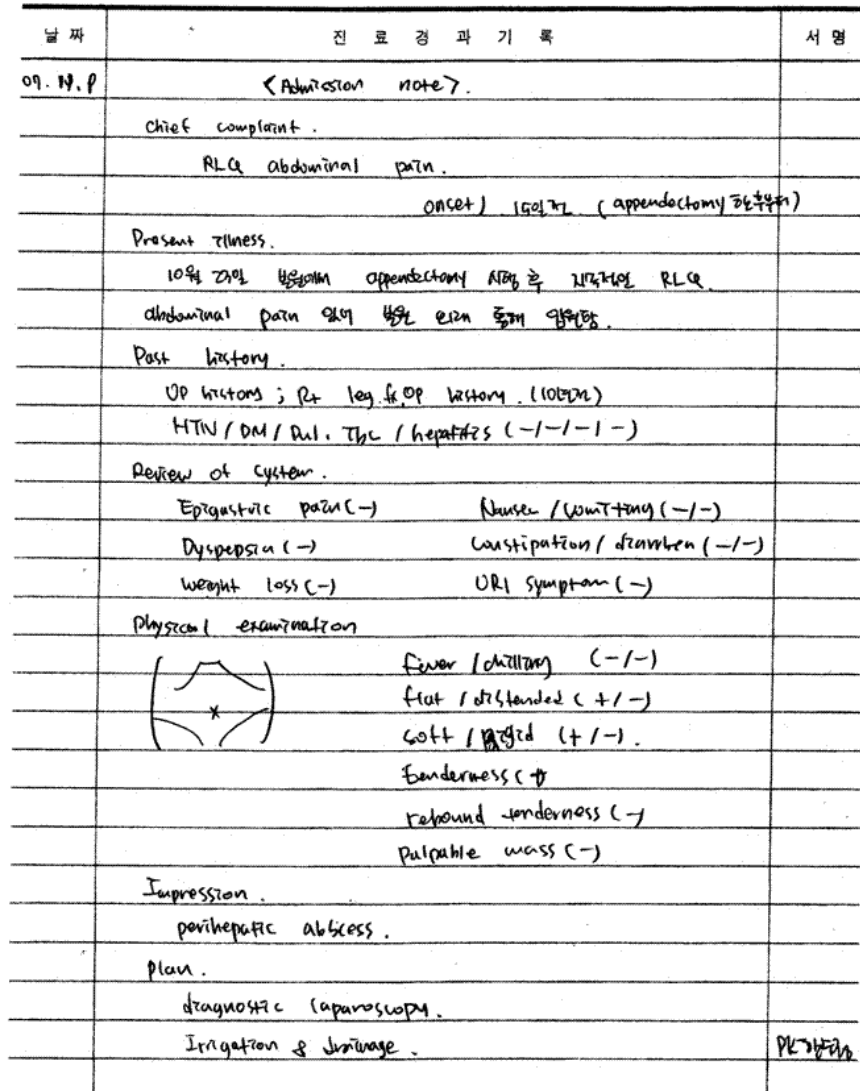 날 짜 진 료 경 과 기 록 서 명
<Admission note>.
Chief complaint.
RLQ abdominal pain.
onset) 15일전 (appendectomy 한후부터)
Present illness.
10월 23일 본원에서 appendectomy 시행 후 지속적인 RLQ
abdominal pain 있어 본원 외래 통해 입원함.
Past history.
OP history ; Rt leg fx. OP history. (10년전)
HTN / DM / Pul. Tbc / hepatitis (-/-/-/-)
Review of system.
Epigastric pain (-) Nausea / vomitting (-/-)
Dyspepsia (-) Constipation / diarrhea (-/-)
weight loss (-) URI symptom (-)
physical examination
fever / chilling (-/-)
flat / distended (+/-)
soft / rigid (+/-).
tenderness (+)
rebound tenderness (-)
palpable mass (-)
Impression.
perihepatic abscess.
plan.
diagnostic laparoscopy.
Irrigation & drainage.